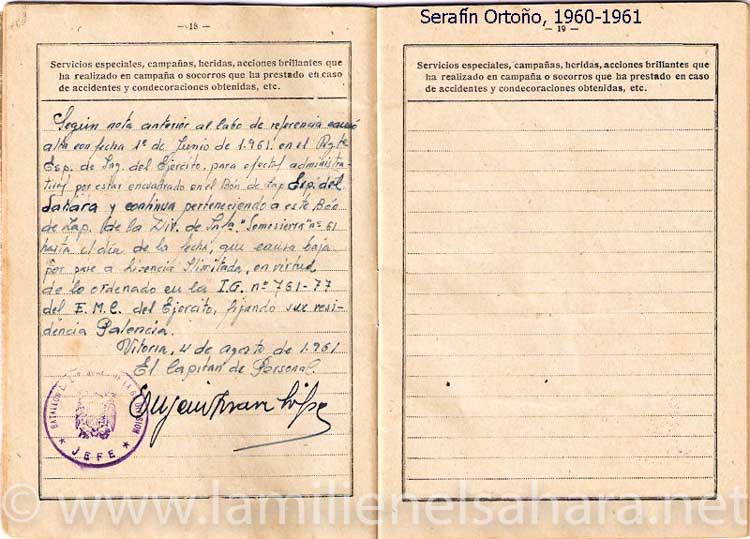 Serafín Ortoño, 1960-1961
— 18 —
Servicios especiales, campañas, heridas, acciones brillantes que
ha realizado en campaña o socorros que ha prestado en caso
de accidentes y condecoraciones obtenidas, etc.
Según nota anterior al lado de referencia causó
alta con fecha 1º de Junio de 1.961. en el Regto
Esp. de Ing. del Ejército, para efectos administra-
tivos por estar encuadrado en el Bón de Zap. Esp. del
Sahara y continua perteneciendo a este Bón
de Zap. de la Div. de Infª. "Somosierra" nº 61
hasta el día de la fecha, que causa baja
por pase a Licencia Ilimitada, en virtud
de lo ordenado en la I.G. nº 761-77
del E.M.C. del Ejercito, fijando sue resi-
dencia Palencia.
Vitoria, 4 de agosto de 1.961
El Capitan de Personal.
BATALLON DIVISION
★ JEFE ★
— 19 —
Servicios especiales, campañas, heridas, acciones brillantes que
ha realizado en campaña o socorros que ha prestado en caso
de accidentes y condecoraciones obtenidas, etc.
© www.lamilienelsahara.net